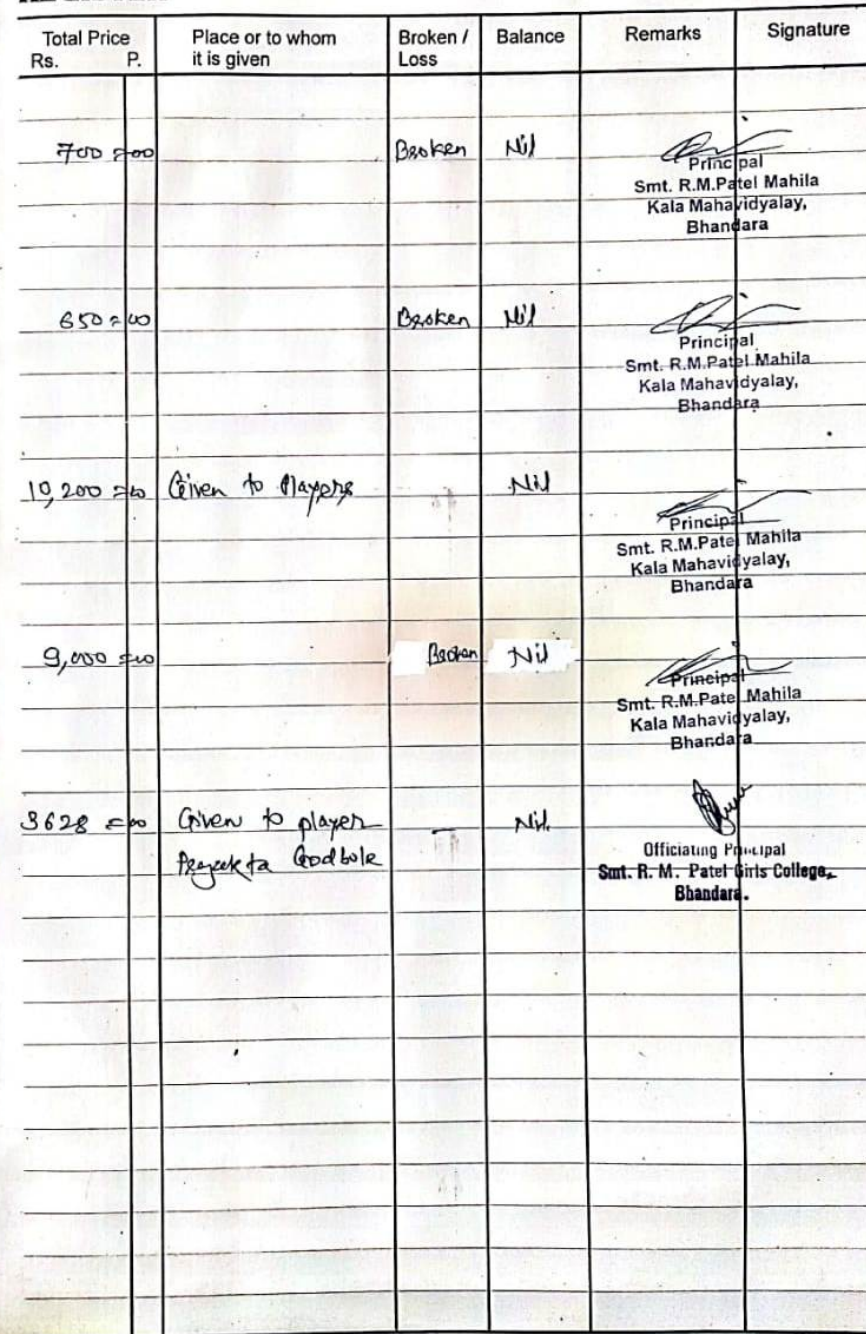 Total Price Rs. P. Place or to whom it is given Broken / Loss Balance Remarks Signature
700=00 Broken Nil
Principal
Smt. R.M.Patel Mahila
Kala Mahavidyalay,
Bhandara
650=00 Broken Nil
Principal
Smt. R.M.Patel Mahila
Kala Mahavidyalay,
Bhandara
10,200=00 Given to Players Nil
Principal
Smt. R.M.Patel Mahila
Kala Mahavidyalay,
Bhandara
9,000=00 Broken Nil
Principal
Smt. R.M.Patel Mahila
Kala Mahavidyalay,
Bhandara
3628=00 Given to player — Nil
Godbole
Officiating Principal
Smt. R. M. Patel Girls College,
Bhandara.